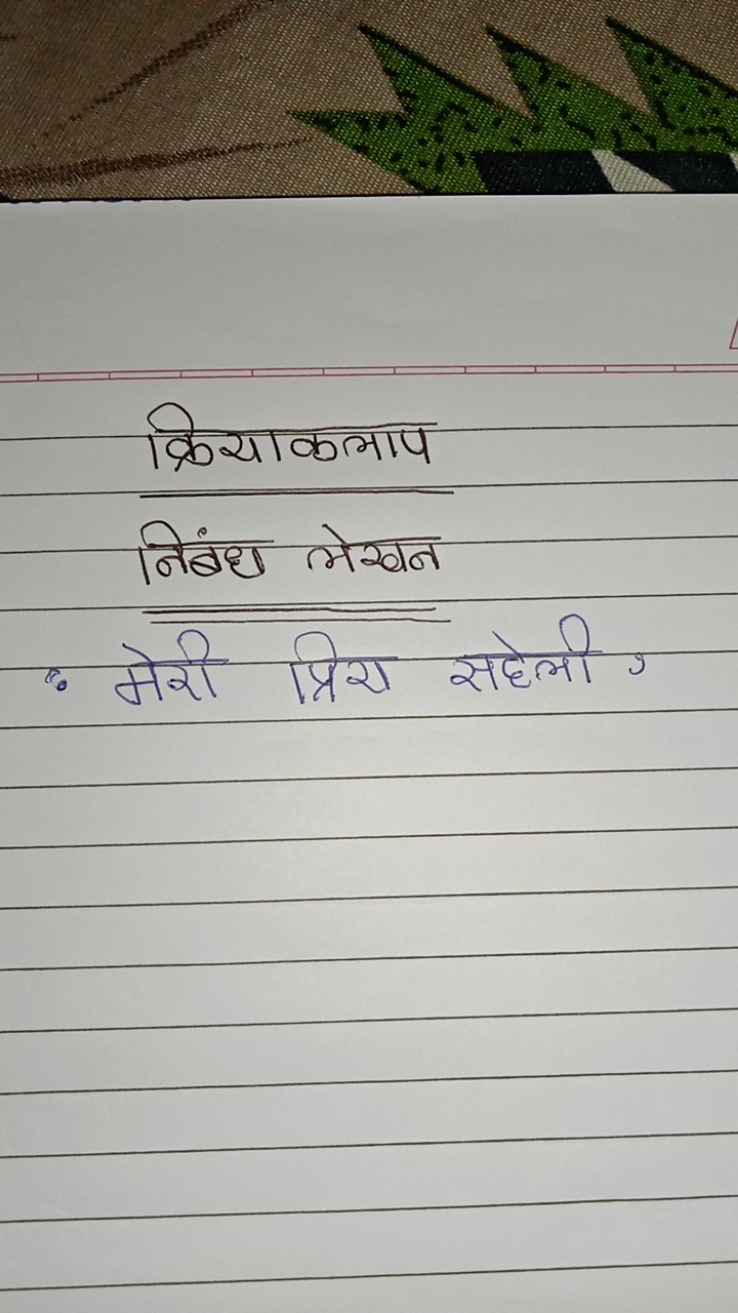 क्रियाकलाप
निबंध लेखन
‘ मेरी प्रिय सहेली ’